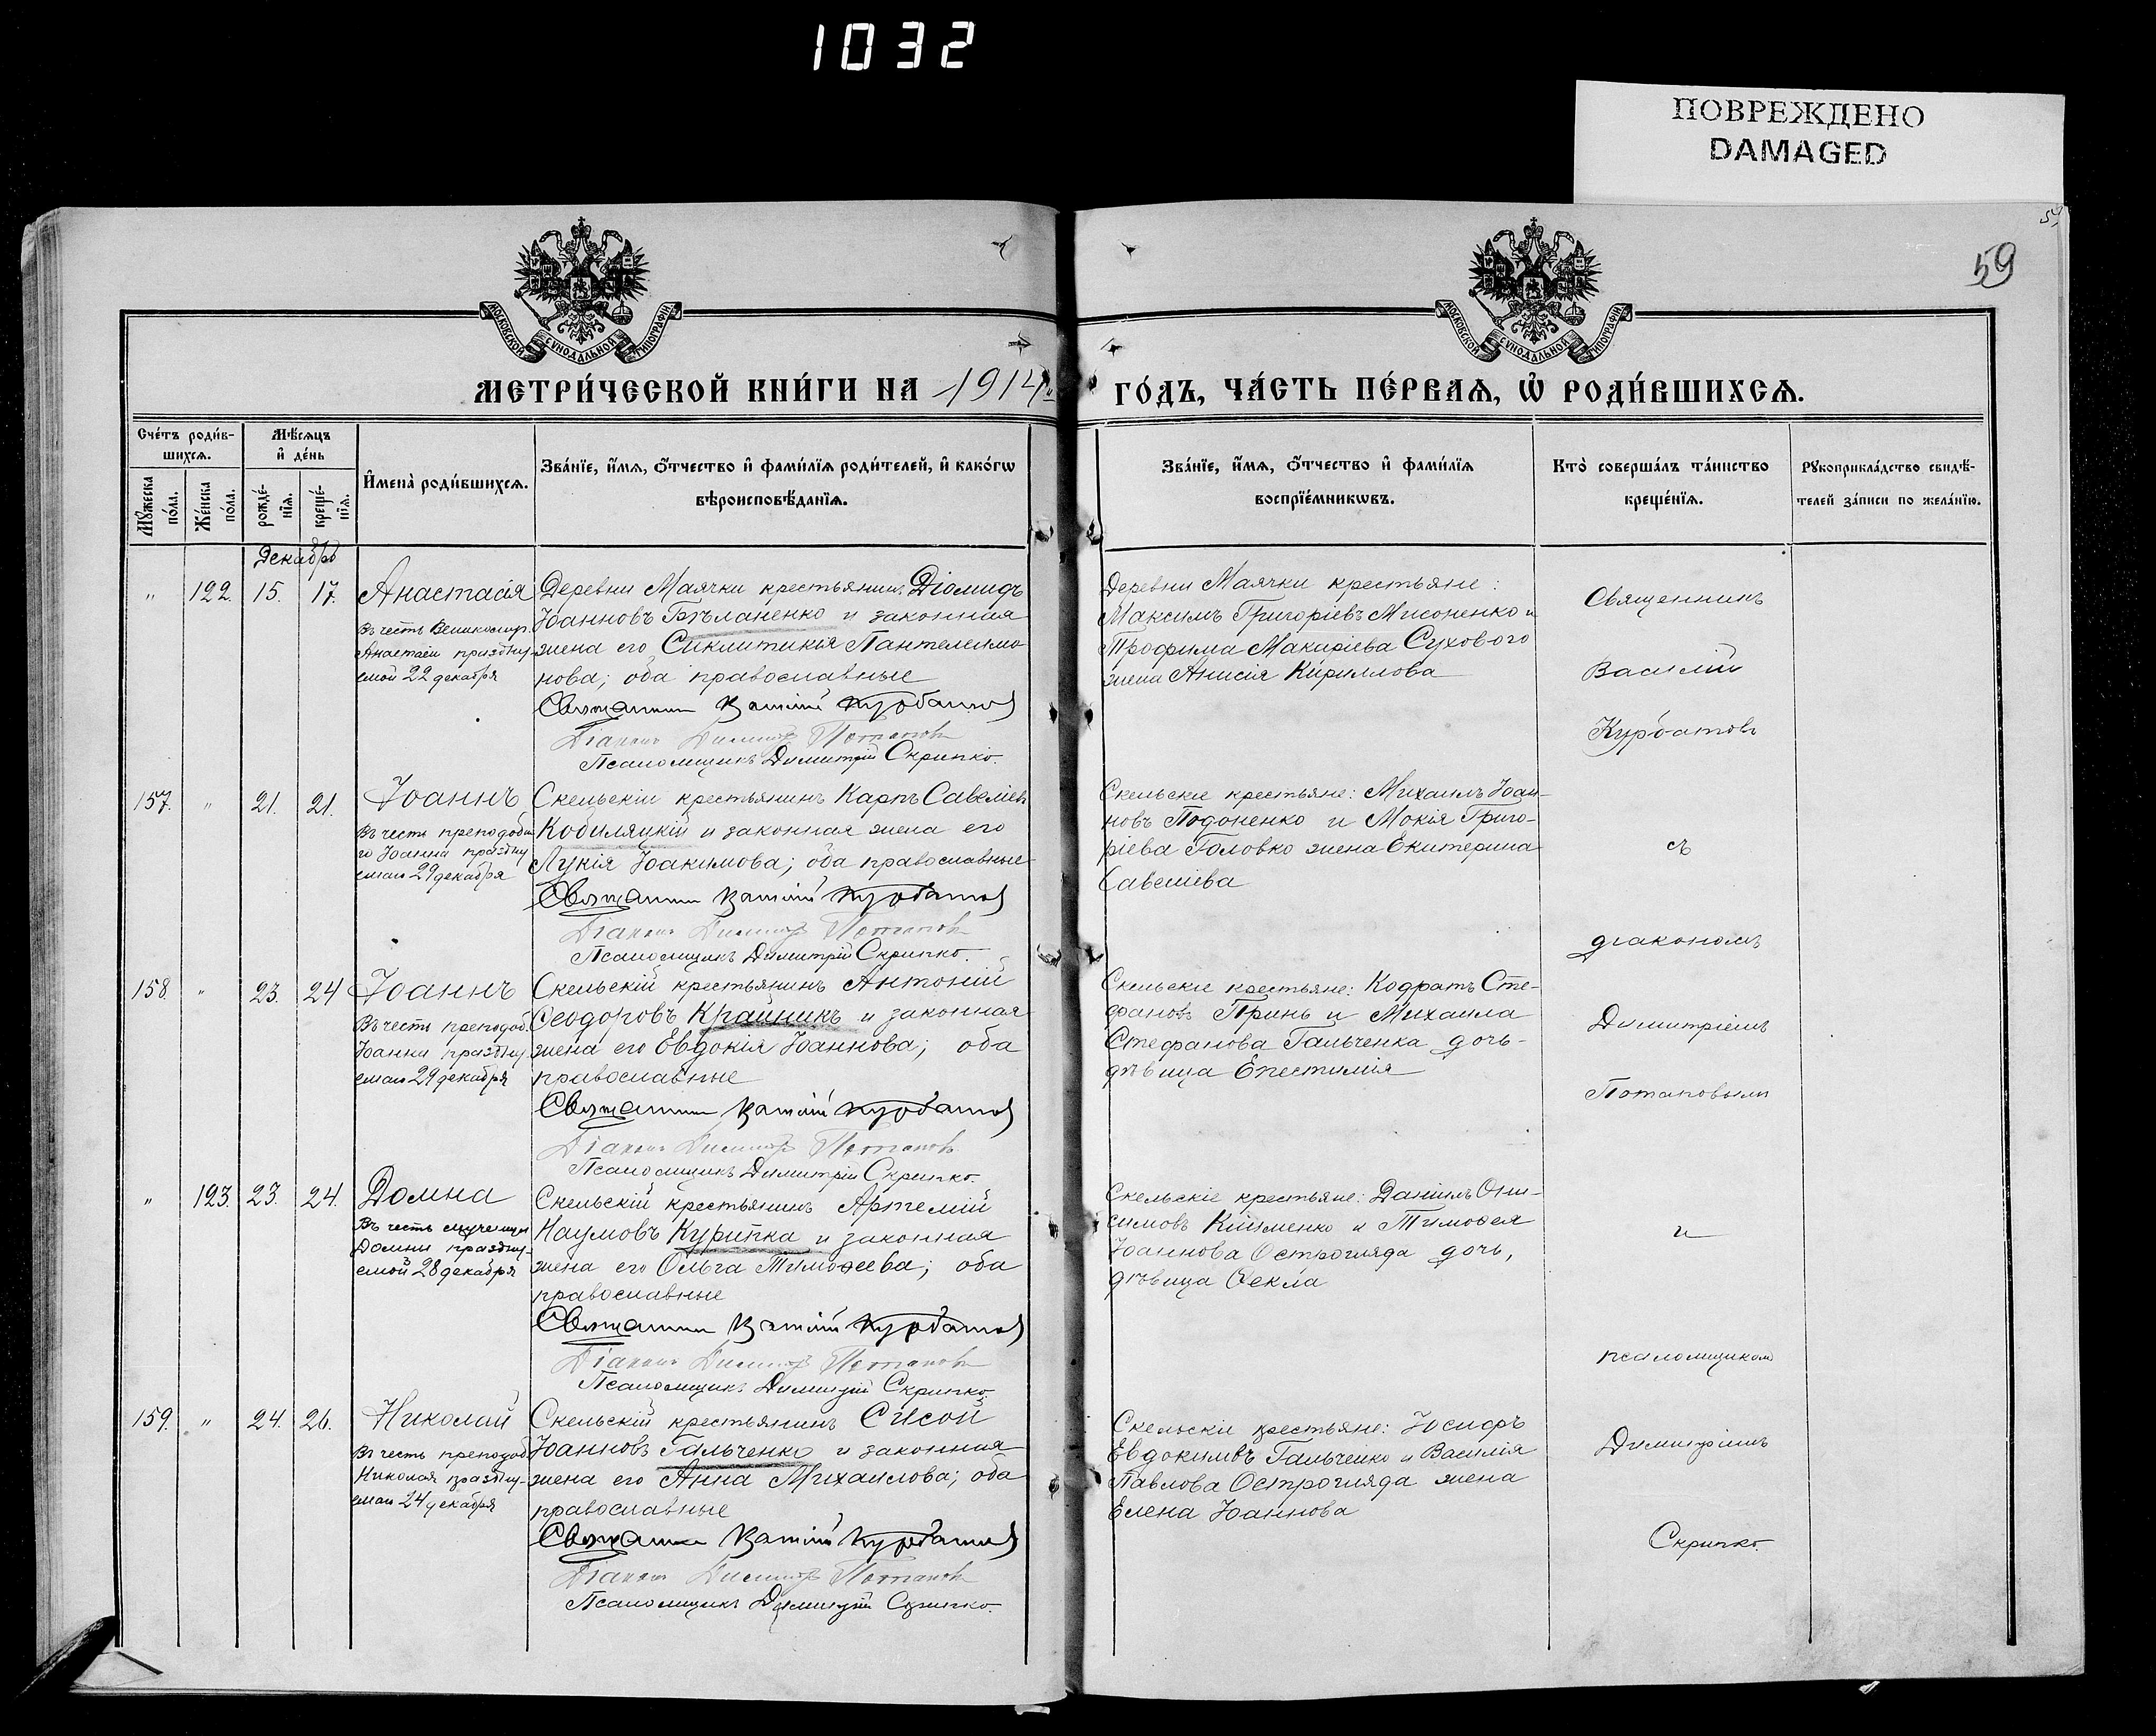 1032
ПОВРЕЖДЕНО
DAMAGED
59
МОСКОВСКОЙ СѴНОДАЛЬНОЙ ТИПОГРАФІИ
МОСКОВСКОЙ СѴНОДАЛЬНОЙ ТИПОГРАФІИ
МЕТРИ́ЧЕСКОЙ КНИ́ГИ НА 1914
ГО́ДЪ, ЧА́СТЬ ПЕ́РВАѦ, Ѡ҆ РОДИ́ВШИХСѦ.
Сче́тъ роди́в-
шихсѧ.
Мѣ́сѧцъ
и҆ де́нь
Мꙋ́жеска
по́ла.
Же́нска
по́ла.
рожде́-
нїѧ.
креще́-
нїѧ.
И҆мена̀ роди́вшихсѧ.
Зва́нїе, и҆́мѧ, ѻ҆́тчество и҆ фами́лїѧ роди́телей, и҆ како́гѡ
вѣроисповѣ́данїѧ.
Зва́нїе, и҆́мѧ, ѻ҆́тчество и҆ фами́лїѧ
воспрїе́мникѡвъ.
Кто̀ соверша́лъ та́инство
креще́нїѧ.
Рꙋкоприкла́дство свидѣ́-
телей за́писи по жела́нїю.
Декабрь
" 122. 15. 17. Анастасія
Въ честь Великомуч.
Анастасіи праздну-
емой 22 декабря
Деревни Маячки крестьянинъ Діомидъ
Іоанновъ Бѣланенко и законная
жена его Сиклитикія Пантелеимо-
нова; оба православные
Священникъ Василій Курбатовъ
Діаконъ Димитрій Потаповъ
Псаломщикъ Димитрій Скрипко.
Деревни Маячки крестьяне:
Максимъ Григоріевъ Мисоненко и
Трофима Макаріева Сухового
жена Анисія Кириллова
157. " 21. 21. Іоаннъ
Въ честь преподобна-
го Іоанна праздну
емаго 29 декабря
Скельскій крестьянинъ Карпъ Савеліевъ
Кобиляцкій и законная жена его
Лукія Іоакимова; оба православные
Священникъ Василій Курбатовъ
Діаконъ Димитрій Потаповъ
Псаломщикъ Димитрій Скрипко.
Скельскіе крестьяне: Михаилъ Іоан-
новъ Подоненко и Мокія Григо-
ріева Головко жена Екатерина
Савеліева
158. " 23. 24 Іоаннъ
Въ честь преподоб.
Іоанна праздну
емаго 29 декабря
Скельскій крестьянинъ Антоній
Ѳеодоровъ Крайникъ и законная
жена его Евдокія Іоаннова; оба
православные
Священникъ Василій Курбатовъ
Діаконъ Димитрій Потаповъ
Псаломщикъ Димитрій Скрипко.
Скельскіе крестьяне: Кодратъ Сте-
фановъ Принь и Михаила
Стефанова Гальченка дочь-
дѣвица Епестимія
" 123. 23. 24. Домна
Въ честь мученицы
Домны праздну-
емой 28 декабря
Скельскій крестьянинъ Артемій
Наумовъ Курипка и законная
жена его Ольга Тимоѳеева; оба
православные
Священникъ Василій Курбатовъ
Діаконъ Димитрій Потаповъ
Псаломщикъ Димитрій Скрипко.
Скельскіе крестьяне: Даніилъ Они-
симовъ Клименко и Тимоѳея
Іоаннова Остроглядa дочь,
дѣвица Ѳекла
159. " 24. 26. Николай
Въ честь преподоб.
Николая праздну-
емаго 24 декабря
Скельскій крестьянинъ Сисой
Іоанновъ Гальченко и законная
жена его Анна Михаилова; оба
православные
Священникъ Василій Курбатовъ
Діаконъ Димитрій Потаповъ
Псаломщикъ Димитрій Скрипко.
Скельскіе крестьяне: Іосифъ
Евдокимвъ Гальченко и Василія
Павлова Остроглядa жена
Елена Іоаннова
Священникъ
Василій
Курбатовъ
съ
діакономъ
Димитріемъ
Потаповымъ
и
псаломщикомъ
Димитріемъ
Скрипко.